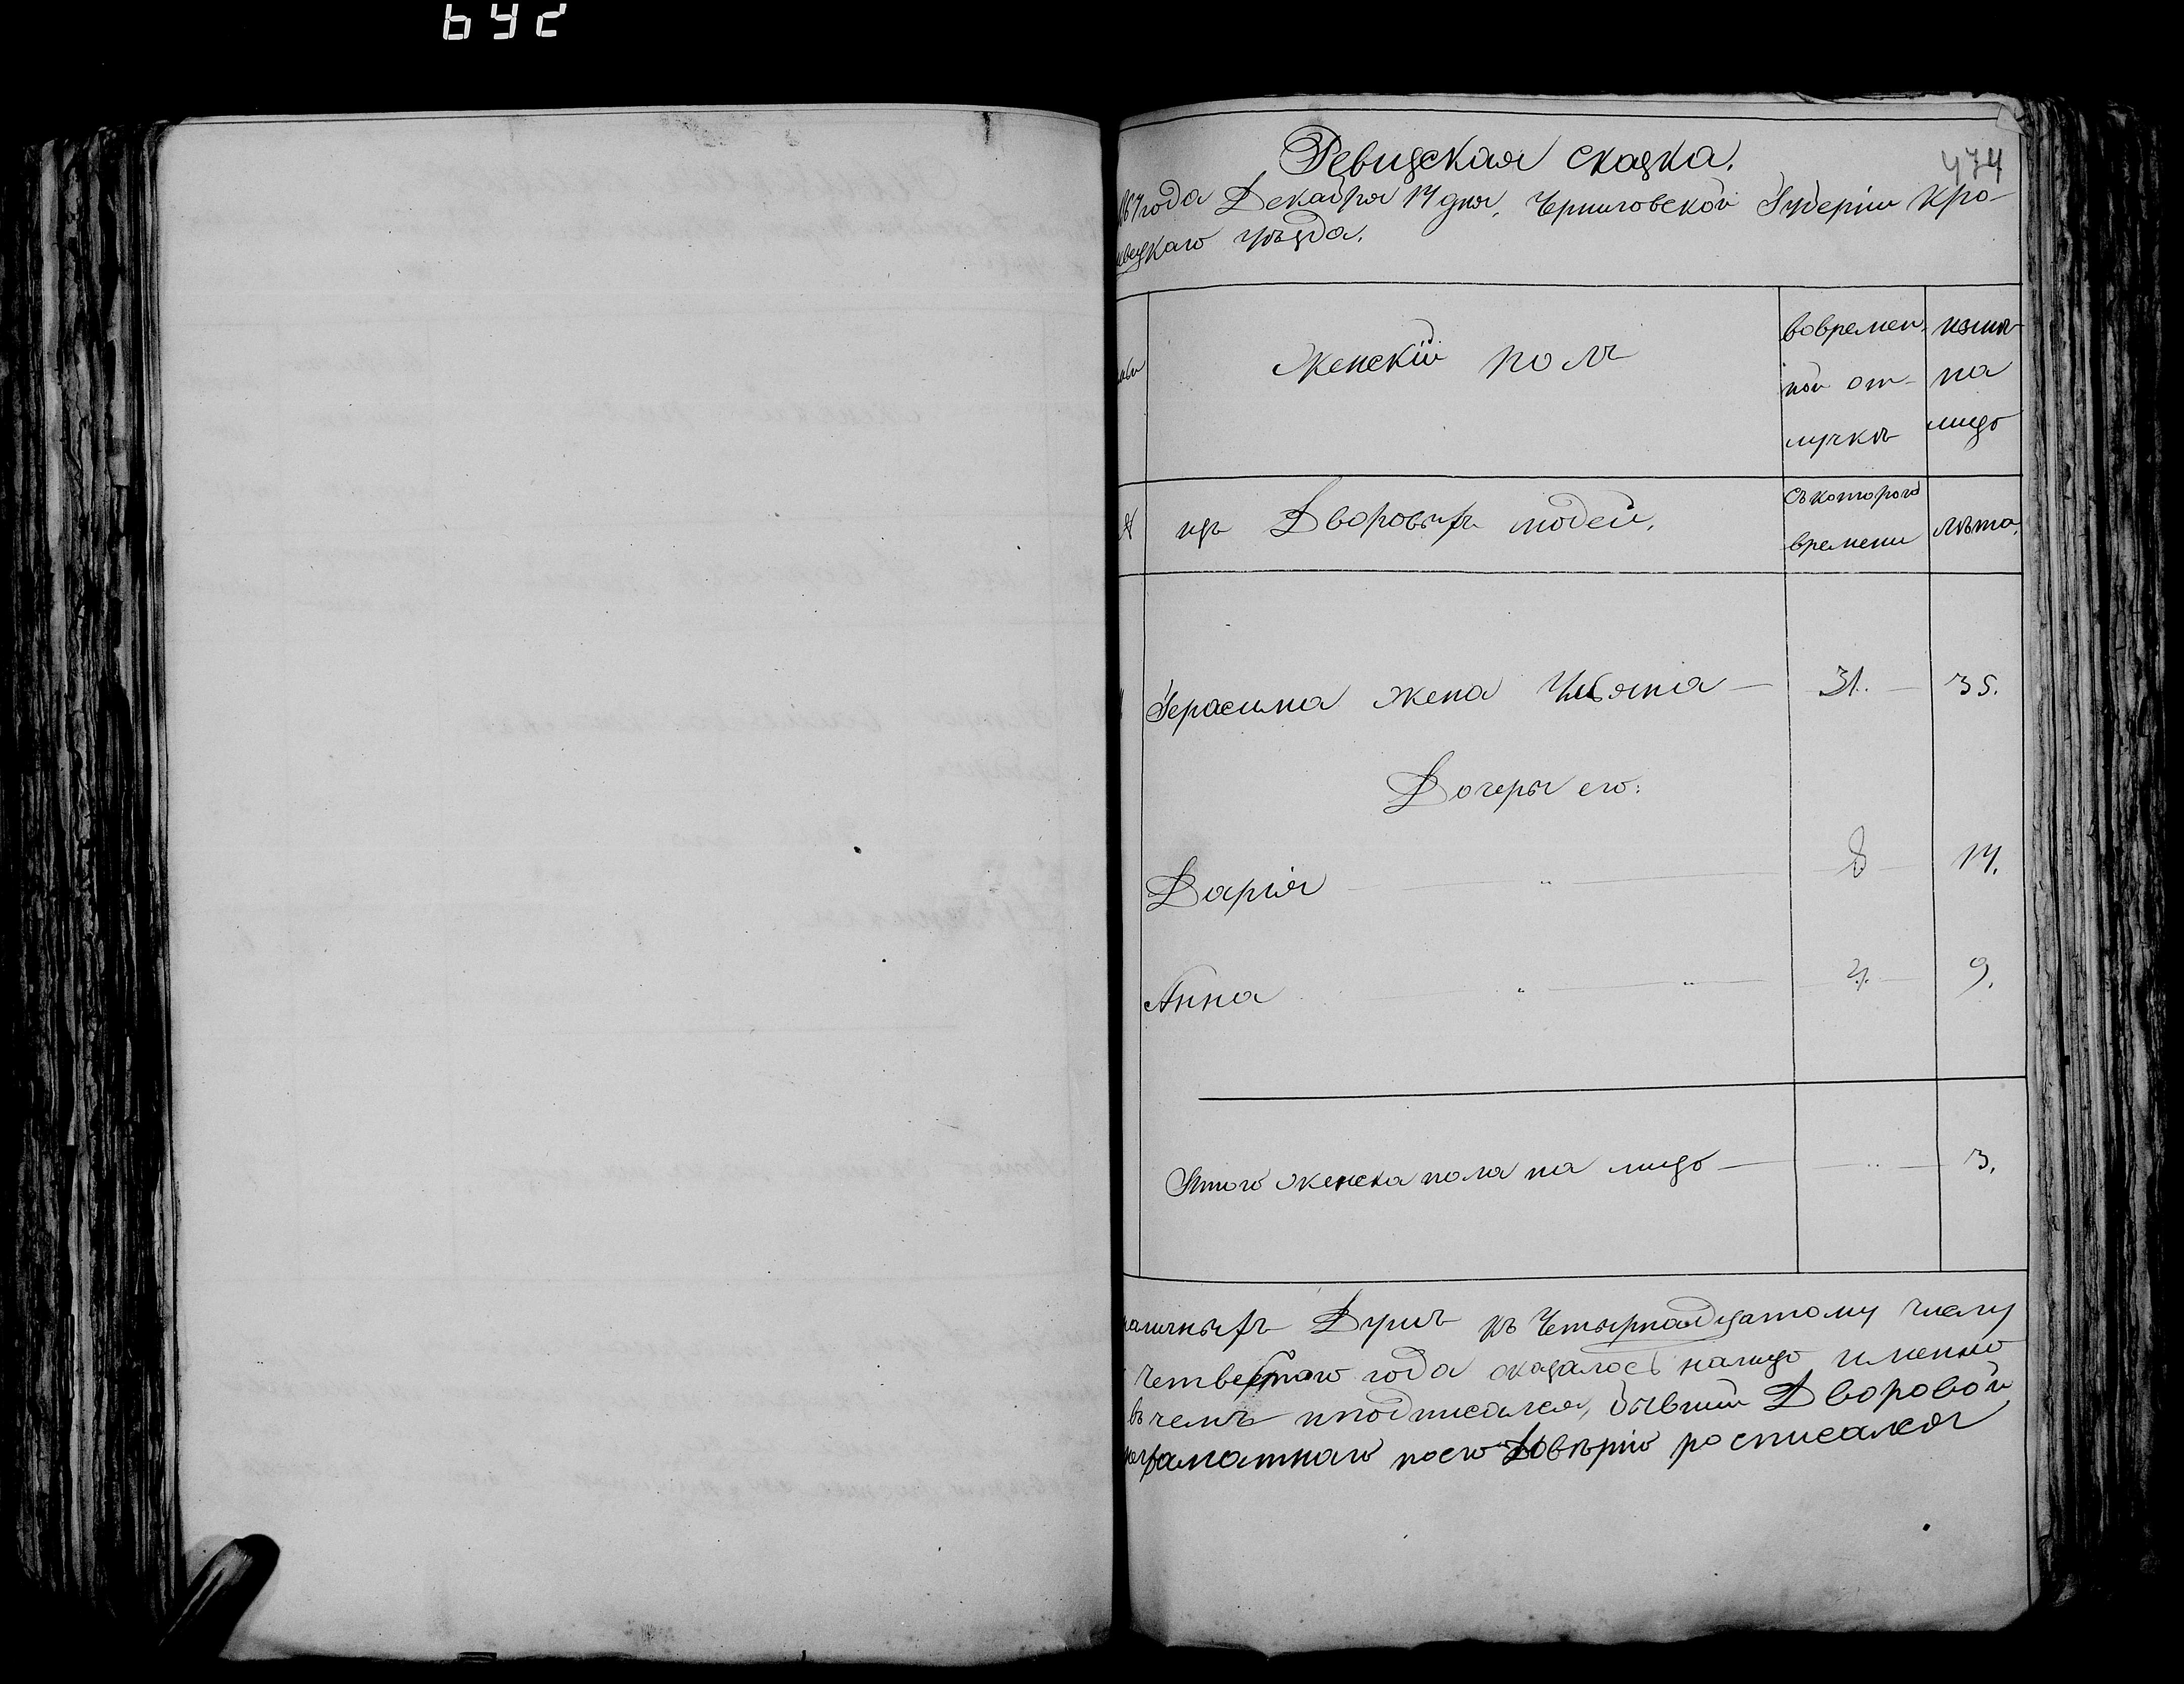 642
474
Ревизская сказка.
года Декабря 14 дня, Черниговской Губерніи Кро-
вецкаго уѣзда.
Женскій полъ
вовремен-
ной от-
лучкѣ
на
лицо
изъ Дворовыхъ людей.
съ котораго
времени
лѣта.
Герасима жена Ульяна 31. 35.
Дочеры его:
Дарія 8 14.
Анна 4. 9.
Итого женска пола на лицо 3.
Душъ къ Четырнадцатому числу
года оказалось налицо именно
въ чемъ и подписался, бывшій Дворовой
посто Довѣрію росписался